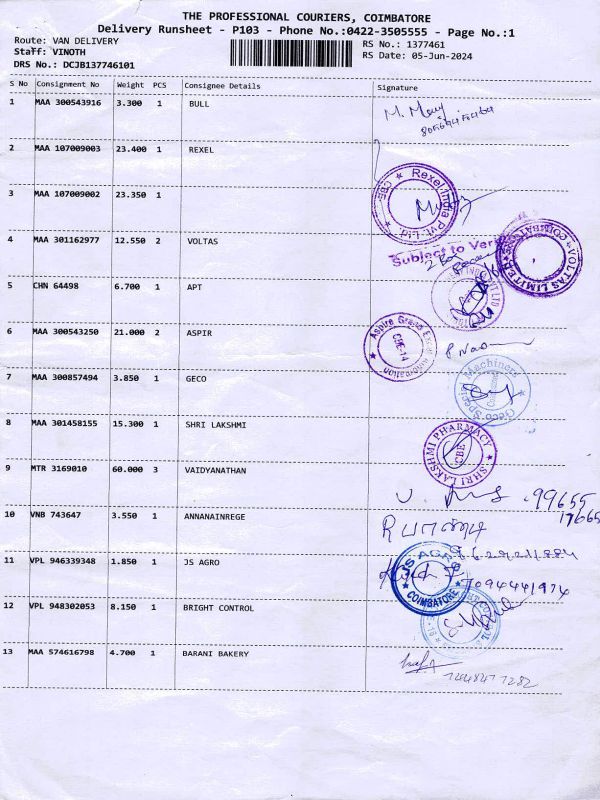 THE PROFESSIONAL COURIERS, COIMBATORE
Delivery Runsheet - P103 - Phone No.:0422-3505555 - Page No.:1
Route: VAN DELIVERY
Staff: VINOTH
DRS No.: DCJB137746101
RS No.: 1377461
RS Date: 05-Jun-2024
S No Consignment No Weight PCS Consignee Details Signature
1 MAA 300543916 3.300 1 BULL
2 MAA 107009003 23.400 1 REXEL
Rexel India Pvt. Ltd. CBE
3 MAA 107009002 23.350 1
4 MAA 301162977 12.550 2 VOLTAS
Subject to
2 Box
VOLTAS LIMITED COIMBATORE
5 CHN 64498 6.700 1 APT
6 MAA 300543250 21.000 2 ASPIR
CBE-14
7 MAA 300857494 3.850 1 GECO
Geco Special Machinery
8 MAA 301458155 15.300 1 SHRI LAKSHMI
SHRI LAKSHMI PHARMACY CBE
9 MTR 3169010 60.000 3 VAIDYANATHAN
99655
17665
10 VNB 743647 3.550 1 ANNANAINREGE
11 VPL 946339348 1.850 1 JS AGRO
JS AGRO COIMBATORE
12 VPL 948302053 8.150 1 BRIGHT CONTROL
13 MAA 574616798 4.700 1 BARANI BAKERY